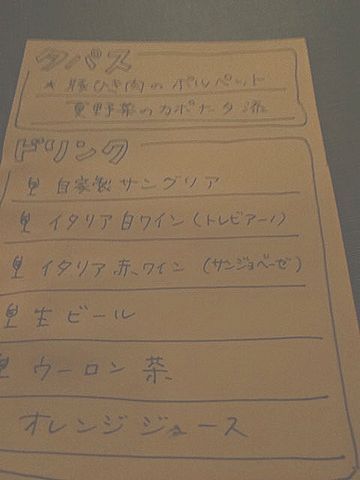 タパス
★豚ひき肉のポルペット
夏野菜のカポナータ添
ドリンク
自家製サングリア
イタリア白ワイン(トレビアーノ)
イタリア赤ワイン(サンジョベーゼ)
生ビール
ウーロン茶
オレンジジュース